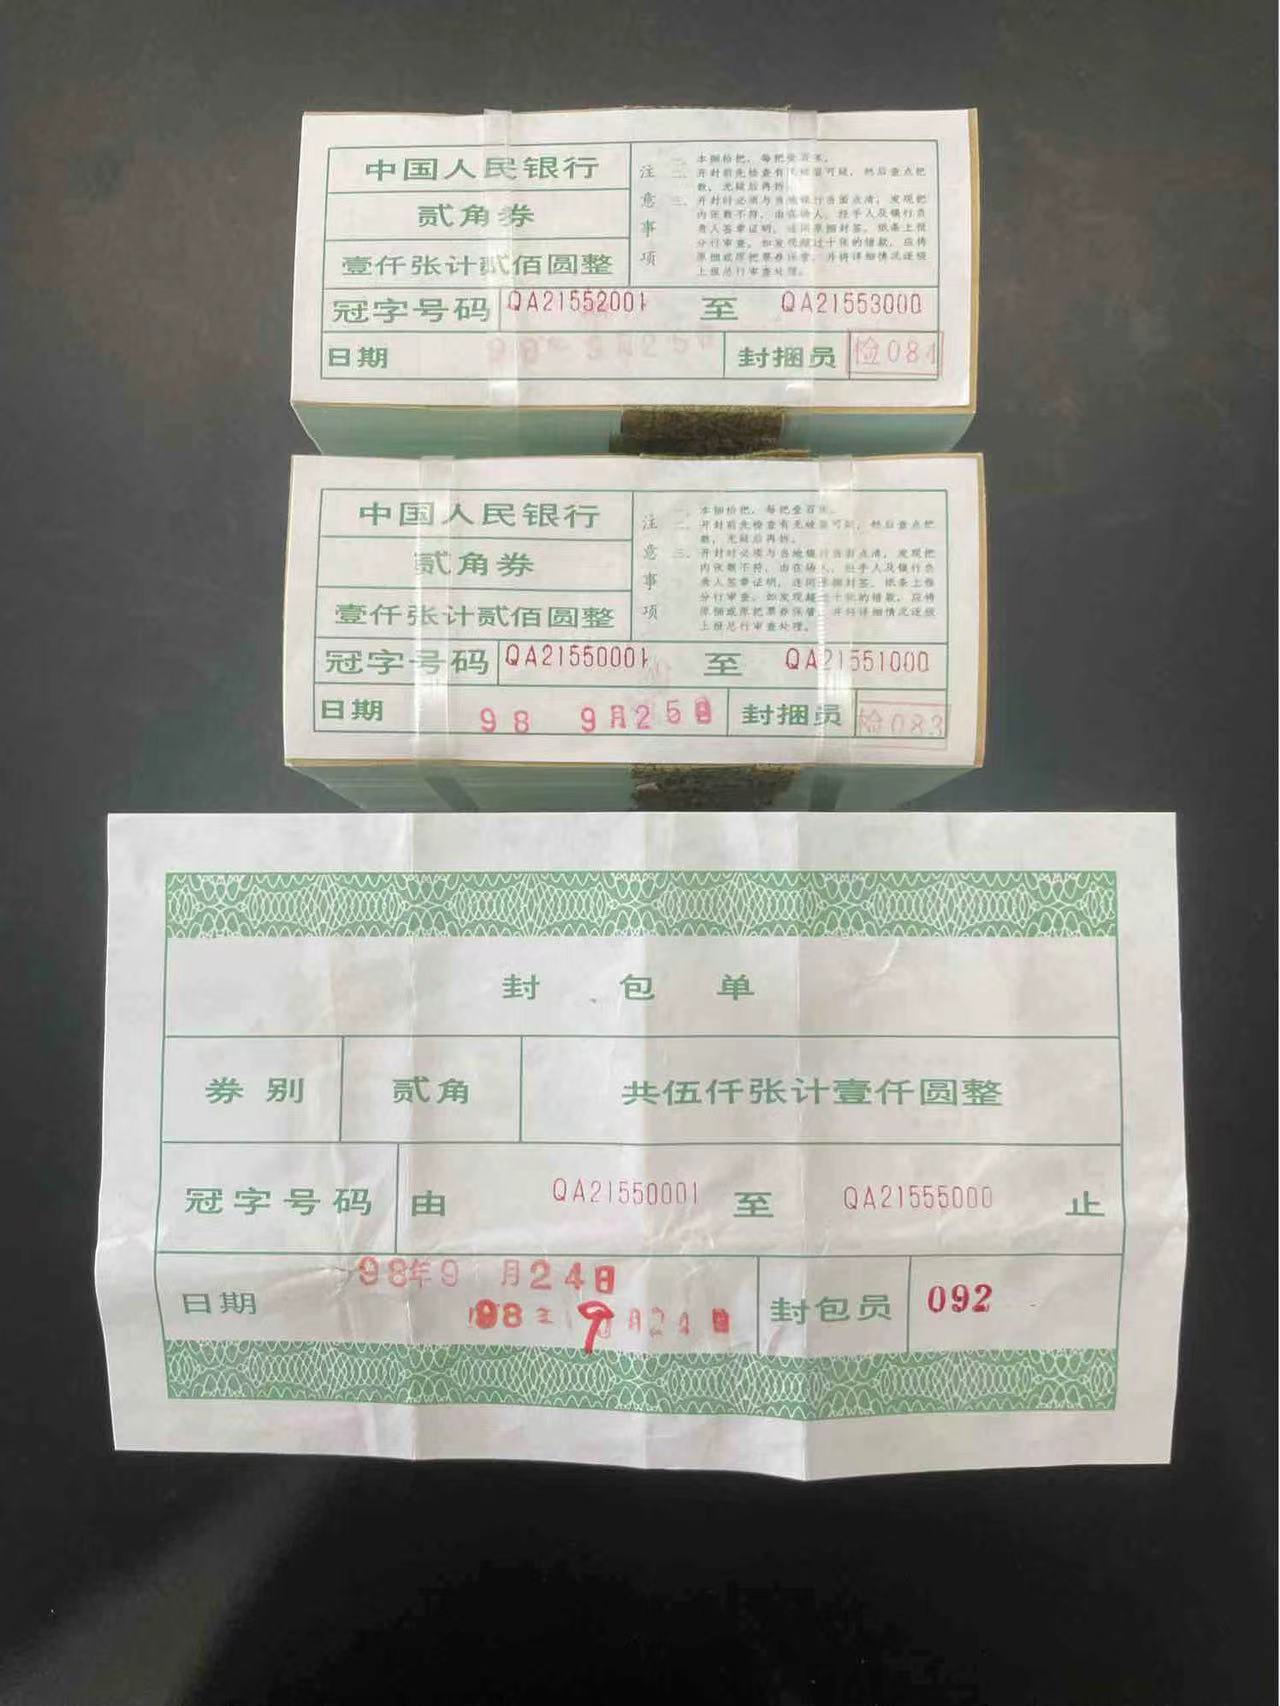 中国人民银行
贰角券
壹仟张计贰佰圆整
注意事项
一、本捆拾把,每把壹百张。
二、开封前先检查有无破损可疑,然后查点把
数,无疑后再拆。
三、开封时必须与当地银行当面点清,发现把
内张数不符,由在场人、经手人及银行负
责人签章证明,连同原捆封签、纸条上报
分行审查,如发现超过十张的错款,应将
原捆或原把票券保管,并将详细情况逐级
上报总行审查处理。
冠字号码 QA21552001 至 QA21553000
日期 98 9月25日 封捆员 检084
中国人民银行
贰角券
壹仟张计贰佰圆整
注意事项
一、本捆拾把,每把壹百张。
二、开封前先检查有无破损可疑,然后查点把
数,无疑后再拆。
三、开封时必须与当地银行当面点清,发现把
内张数不符,由在场人、经手人及银行负
责人签章证明,连同原捆封签、纸条上报
分行审查,如发现超过十张的错款,应将
原捆或原把票券保管,并将详细情况逐级
上报总行审查处理。
冠字号码 QA21550001 至 QA21551000
日期 98 9月25日 封捆员 检083
封包单
券别 贰角 共伍仟张计壹仟圆整
冠字号码 由 QA21550001 至 QA21555000 止
98年9月24日
日期 98年9月24日 封包员 092